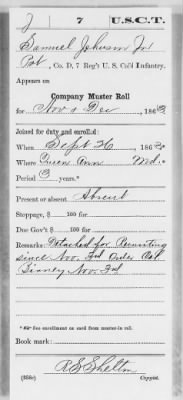 J 7 U.S.C.T.
Samuel Johnson Jr
Pvt, Co. D, 7 Reg't U. S. Col'd Infantry.
Appears on
Company Muster Roll
for Nov & Dec, 1863
Joined for duty and enrolled:
When Sept 26, 1863
Where Queen Ann Md.
Period 3 years.*
Present or absent Absent
Stoppage, $ 100 for
Due Gov't $ 100 for
Remarks: Detached for Recruiting
since Nov. 3rd Order Col
Birney Nov. 3rd
* See enrollment on card from muster-in roll.
Book mark:
R E Shelton
(858c) Copyist.